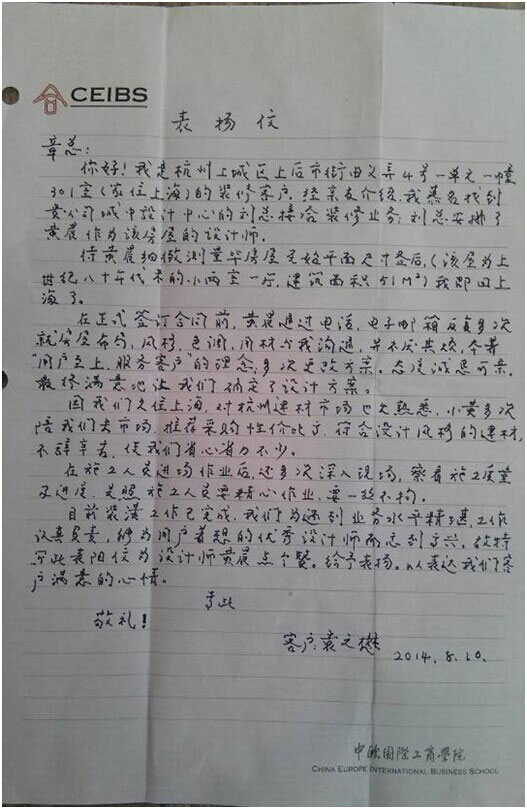 CEIBS
表扬信
章总:
你好!我是杭州上城区上后市街由义弄4号一单元一幢
301室(家住上海)的装修客户.经亲友介绍,我慕名找到
贵公司城中设计中心的刘总接洽装修业务,刘总安排了
黄晨作为该房屋的设计师。
待黄晨细微测量毕房屋原始平面尺寸签后,(该屋为上
世纪八十年代末的小两室一厅,建筑面积51M²)我即回上
海了。
在正式签订合同前,黄晨通过电话,电子邮箱反复多次
就房屋布局,风格,色调,用材与我沟通,并不厌其烦,本着
"用户至上,服务客户"的理念,多次更改方案。态度诚恳可亲.
最终满意地让我们确定了设计方案。
因我们久住上海,对杭州建材市场也欠熟悉,小黄多次
陪我们去市场,推荐采购性价比高,符合设计风格的建材,
不辞辛苦,使我们省心省力不少。
在施工人员进场作业后,还多次深入现场,察看施工质量
及进度,关照施工人员要精心作业,要一丝不拘。
目前装潢工作已完成,我们为遇到业务水平精湛,工作
认真负责,能为用户着想的优秀设计师而感到高兴,故特
写此表扬信为设计师黄晨点个赞。给予表扬。以表达我们客
户满意的心情。
专此
敬礼!
客户:袁之懋
2014.8.10.
中欧国际工商学院
CHINA EUROPE INTERNATIONAL BUSINESS SCHOOL